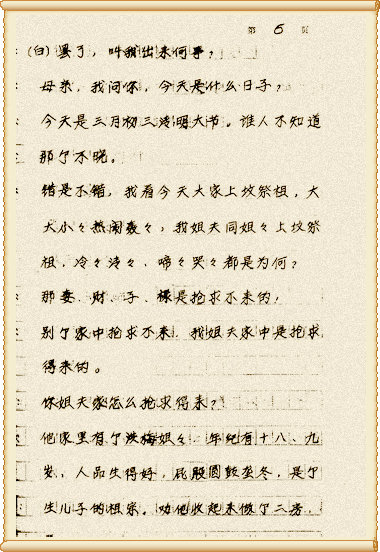 第 6 页
(白)罢了，叫我出来何事？
母亲，我问你，今天是什么日子？
今天是三月初三清明大节。谁人不知道
那个不晓。
错是不错，我看今天大家上坟祭祖，大
大小々热闹轰々；我姐夫同姐々上坟祭
祖，冷々清々、啼々哭々都是为何？
那妻、财、子、禄是抢求不来的，
别个家中抢求不来，我姐夫家中是抢求
得来的。
你姐夫家怎么抢求得来？
他家里有个梅姐々，年纪有十八、九
岁，人品生得好，屁股圆是个
生儿子的祖宗。劝他收起来做个二房，